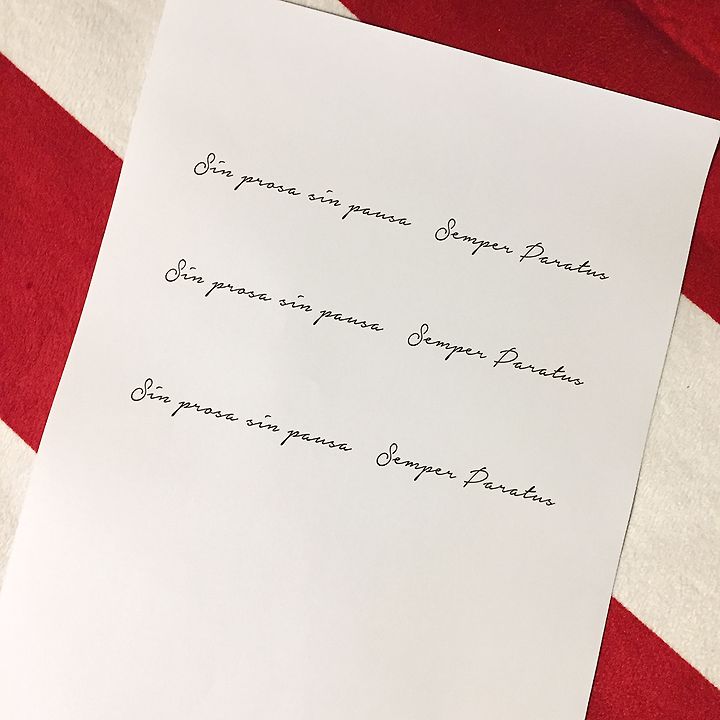 Sin prosa sin pausa Semper Paratus
Sin prosa sin pausa Semper Paratus
Sin prosa sin pausa Semper Paratus